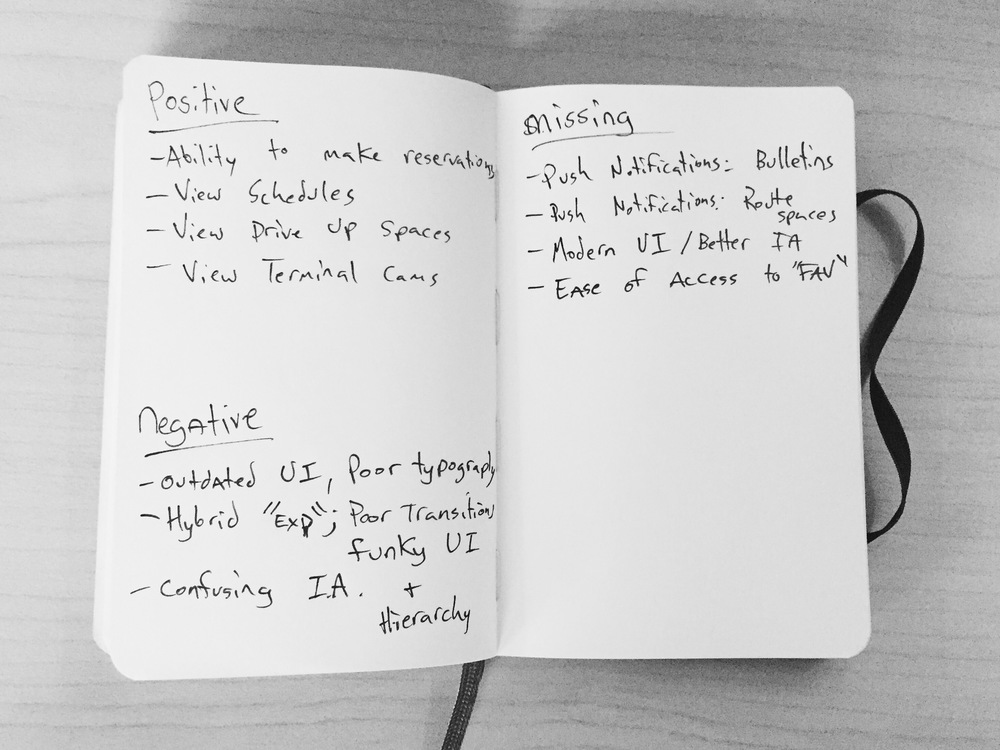 Positive
- Ability to make reservations
- View Schedules
- View Drive Up Spaces
- View Terminal Cams
Negative
- Outdated UI, Poor typography
- Hybrid "Exp"; Poor Transitions
funky UI
- Confusing I.A. +
Hierarchy
missing
- Push Notifications: Bulletins
- Push Notifications: Route
spaces
- Modern UI / Better IA
- Ease of Access to "FAV"